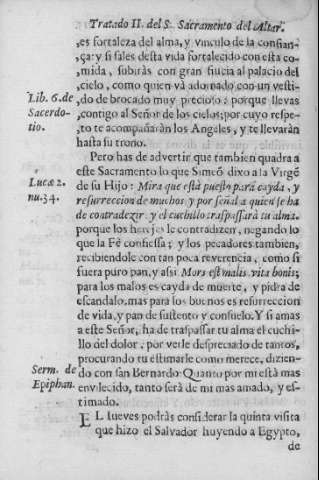 Tratado II. del S. Sacramento del Altar.
,es fortaleza del alma, y vinculo de la confian-
,ça: y si sales desta vida fortalecido con esta co-
,mida, subiràs con gran fiucia al palacio del
,cielo, como quien và adornado con un vesti-
Lib. 6. de
,do de brocado muy precioso: porque llevas
Sacerdo-
,contigo al Señor de los cielos; por cuyo respe-
tio.
,to te acompañaràn los Angeles, y te llevaràn
hasta su trono.
Pero has de advertir que tambien quadra a
este Sacramento lo que Simeõ dixo a la Virgẽ
Lucæ 2.
de su Hijo: Mira que està puesto para cayda, y
nu. 34.
resurreccion de muchos y por señal a quien se ha
de contradezir y el cuchillo traspassarà tu alma.
porque los herejes le contradizen, negando lo
que la Fè confiessa; y los pecadores tambien,
recibiendole con tan poca reverencia, como si
fuera puro pan, y assi Mors est malis, vita bonis;
para los malos es cayda de muerte, y pidra de
escandalo, mas para los buenos es resurreccion
de vida, y pan de sustento y consuelo. Y si amas
a este Señor, ha de traspassar tu alma el cuchi-
llo del dolor, por verle despreciado de tantos,
procurando tu estimarle como merece, dizien-
Serm. de
do con san Bernardo: Quanto por mi està mas
Epiphan.
envilecido, tanto serà de mi mas amado, y es-
timado.
EL Iueves podràs considerar la quinta visita
que hizo el Salvador huyendo a Egypto,
de